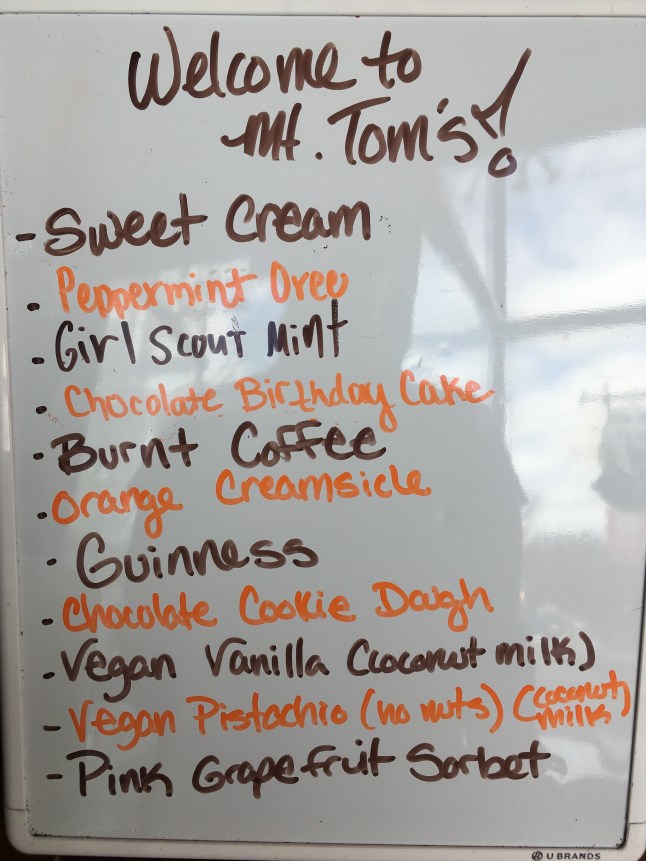 Welcome to
Mt. Tom's!
- Sweet Cream
- Peppermint Oreo
- Girl Scout Mint
- Chocolate Birthday Cake
- Burnt Coffee
- Orange Creamsicle
- Guinness
- Chocolate Cookie Dough
- Vegan Vanilla (coconut milk)
- Vegan Pistachio (no nuts) (coconut milk)
- Pink Grapefruit Sorbet
U BRANDS